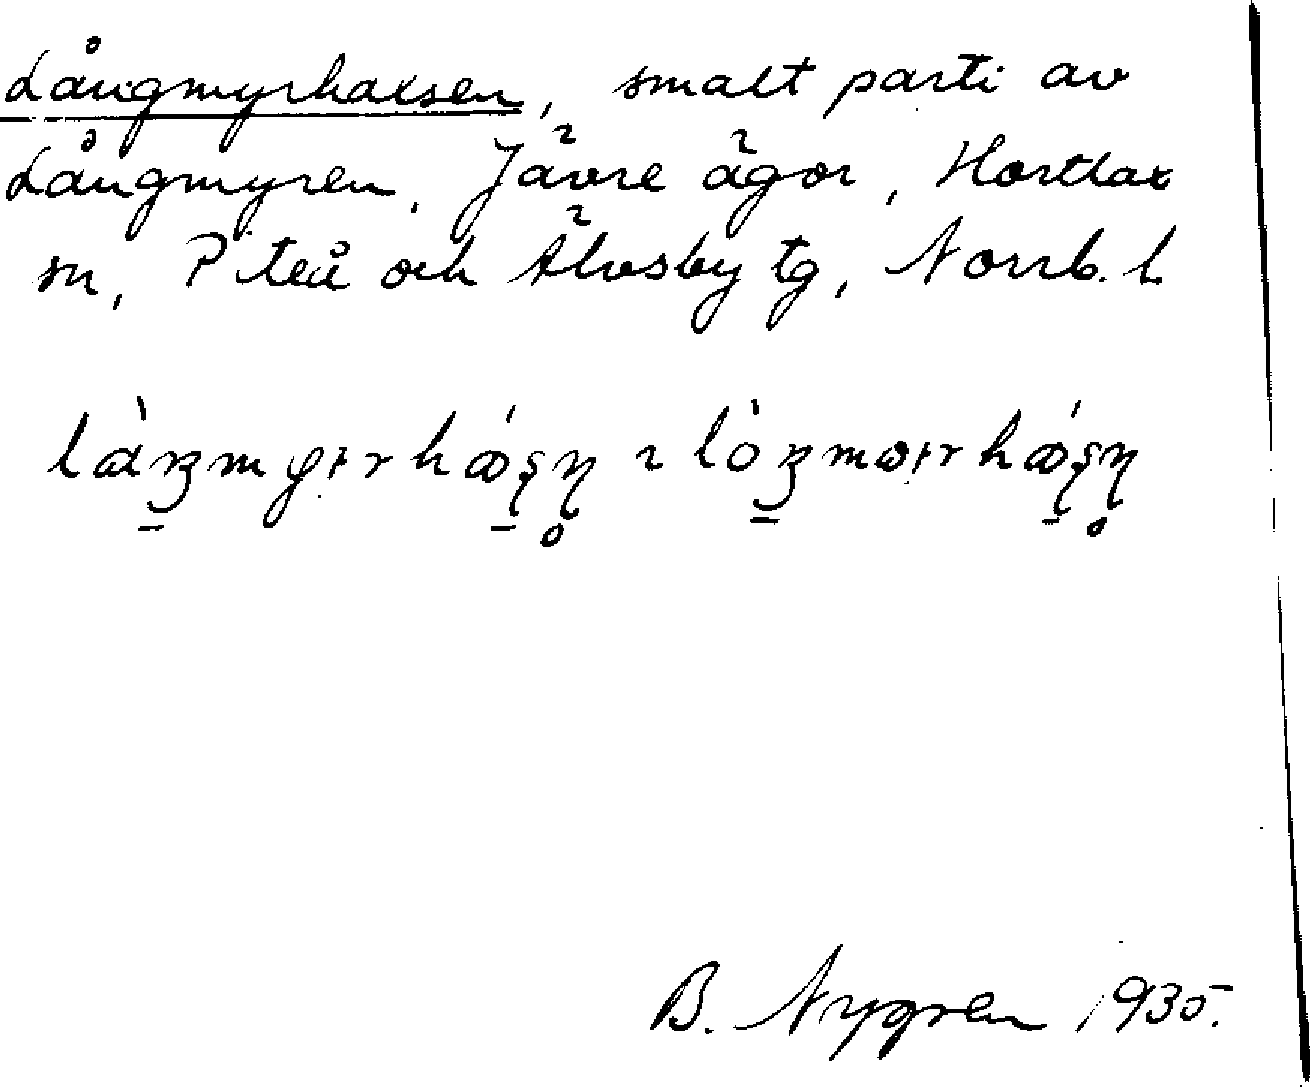 Långmyrhalsen, smalt parti av
Långmyren, Jävre ägor, Hortlax
sn, Piteå och Älvsby tg, Norrb. l
B. Nygren 1935.